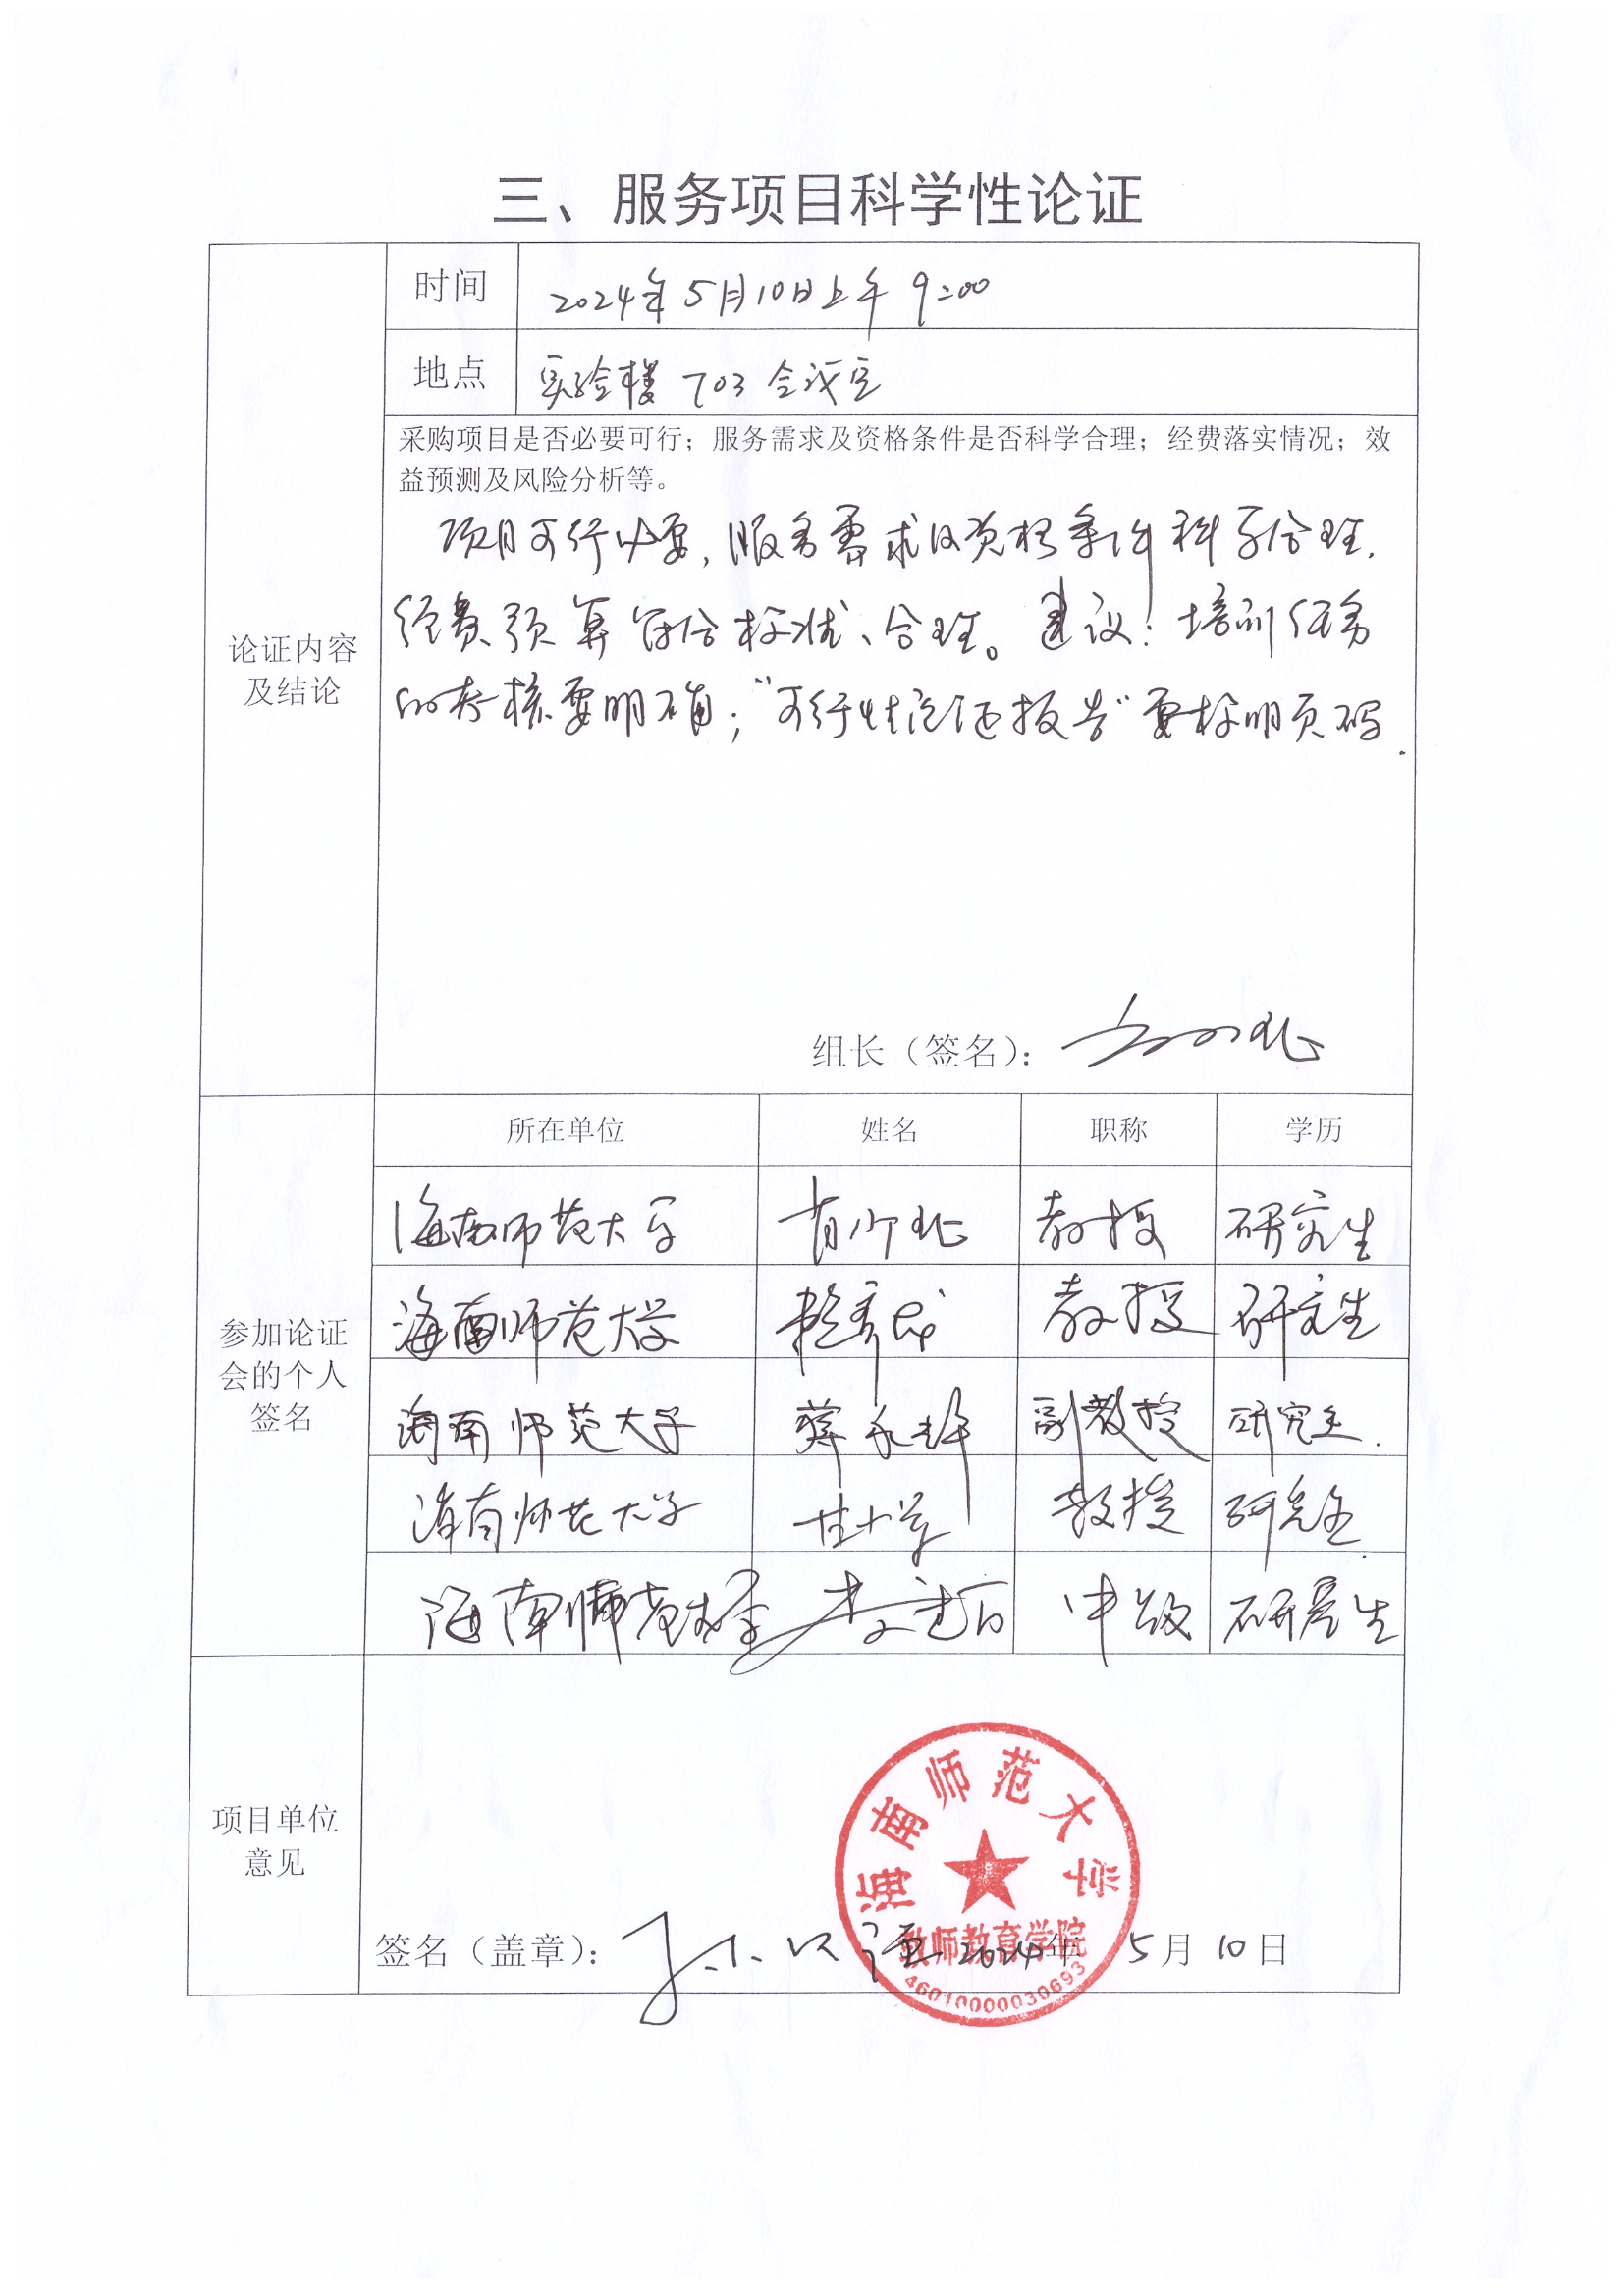 三、服务项目科学性论证
时间
2024年5月10日上午9:00
地点
实验楼703会议室
论证内容
及结论
采购项目是否必要可行；服务需求及资格条件是否科学合理；经费落实情况；效
益预测及风险分析等。
项目可行必要，服务需求及资格条件科学合理.
经费预算符合标准、合理。建议：培训任务
的考核要明确；“可行性论证报告”要标明页码.
组长（签名）：
参加论证
会的个人
签名
所在单位 姓名 职称 学历
海南师范大学 肖少北 教授 研究生
海南师范大学 教授 研究生
海南师范大学 副教授 研究生.
海南师范大学 教授 研究生.
海南师范大学 中级 研究生
项目单位
意见
签名（盖章）： 2024年 5月10日
海南师范大学
教师教育学院
46010000030693